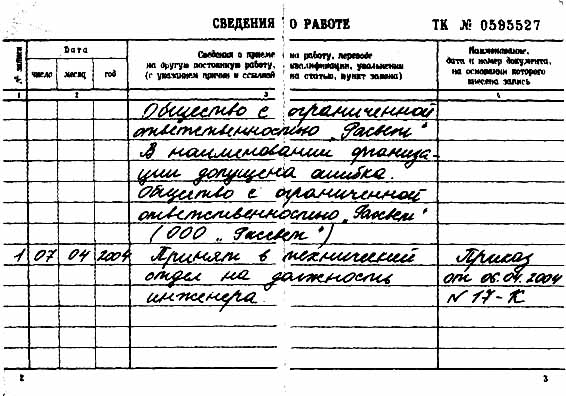 СВЕДЕНИЯ О РАБОТЕ ТК № 0595527
№ записи
Дата
число месяц год
Сведения о приеме на работу, переводе
на другую постоянную работу, квалификации, увольнении
(с указанием причин и ссылкой на статью, пункт закона)
Наименование,
дата и номер документа,
на основании которого
внесена запись
1 2 3 4
Общество с ограниченной
ответственностью „Расвет"
В наименовании организа-
ции допущена ошибка.
Общество с ограниченной
ответственностью „Рассвет"
(ООО „Рассвет")
1 07 04 2004 Принят в технический Приказ
отдел на должность от 06.04.2004
инженера. N 17-К
2 3